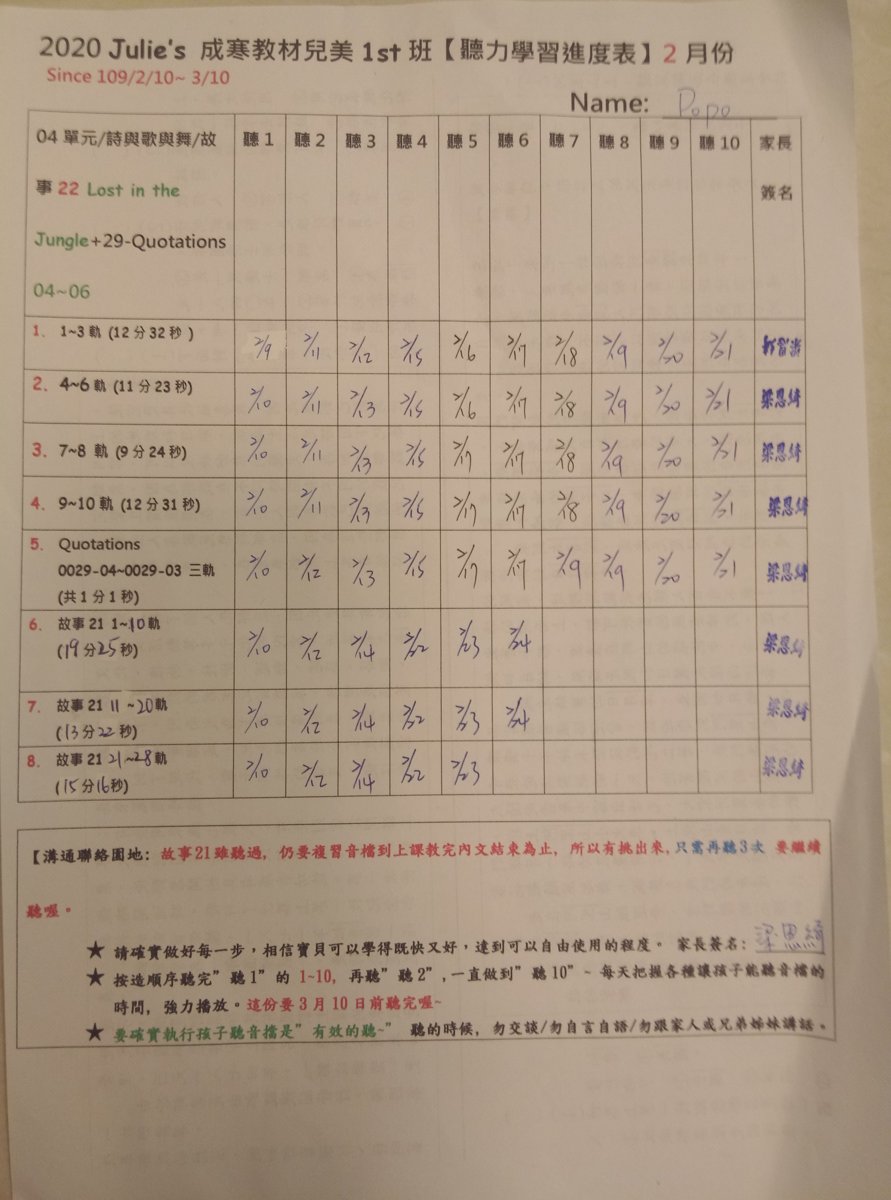 2020 Julie's 成寒教材兒美 1st 班【聽力學習進度表】2 月份
Since 109/2/10~ 3/10
Name: Popo
04 單元/詩與歌與舞/故 聽 1 聽 2 聽 3 聽 4 聽 5 聽 6 聽 7 聽 8 聽 9 聽 10 家長
事 22 Lost in the 簽名
Jungle+29-Quotations
04~06
1. 1~3 軌 (12 分 32 秒 ) 2/9 2/11 2/12 2/15 2/16 2/17 2/18 2/19 2/20 2/21
2. 4~6 軌 (11 分 23 秒) 2/10 2/11 2/13 2/15 2/16 2/17 2/18 2/19 2/20 2/21 梁恩綺
3. 7~8 軌 (9 分 24 秒) 2/10 2/11 2/13 2/15 2/17 2/17 2/18 2/19 2/20 2/21 梁恩綺
4. 9~10 軌 (12 分 31 秒) 2/10 2/11 2/13 2/15 2/17 2/17 2/18 2/19 2/20 2/21 梁恩綺
5. Quotations
0029-04~0029-03 三軌 2/10 2/12 2/13 2/15 2/17 2/17 2/19 2/19 2/20 2/21 梁恩綺
(共 1 分 1 秒)
6. 故事 21 1~10 軌
(19 分 25 秒) 2/10 2/12 2/14 2/22 2/23 2/24 梁恩綺
7. 故事 21 11 ~20 軌 2/10 2/12 2/14 2/22 2/23 2/24 梁恩綺
(13 分 22 秒)
8. 故事 21 21~28 軌 2/10 2/12 2/14 2/22 2/23 梁恩綺
(15 分 16 秒)
【溝通聯絡園地: 故事21雖聽過, 仍要複習音檔到上課教完內文結束為止, 所以有挑出來,只需再聽3次 要繼續
聽喔。
★ 請確實做好每一步，相信寶貝可以學得既快又好，達到可以自由使用的程度。 家長簽名: 梁恩綺
★ 按造順序聽完”聽1”的 1~10, 再聽”聽2”,一直做到”聽10”~ 每天把握各種讓孩子能聽音檔的
時間，強力播放。這份要 3 月 10 日前聽完喔~
★ 要確實執行孩子聽音擋是”有效的聽~” 聽的時候，勿交談/勿自言自語/勿跟家人或兄弟姊妹講話。